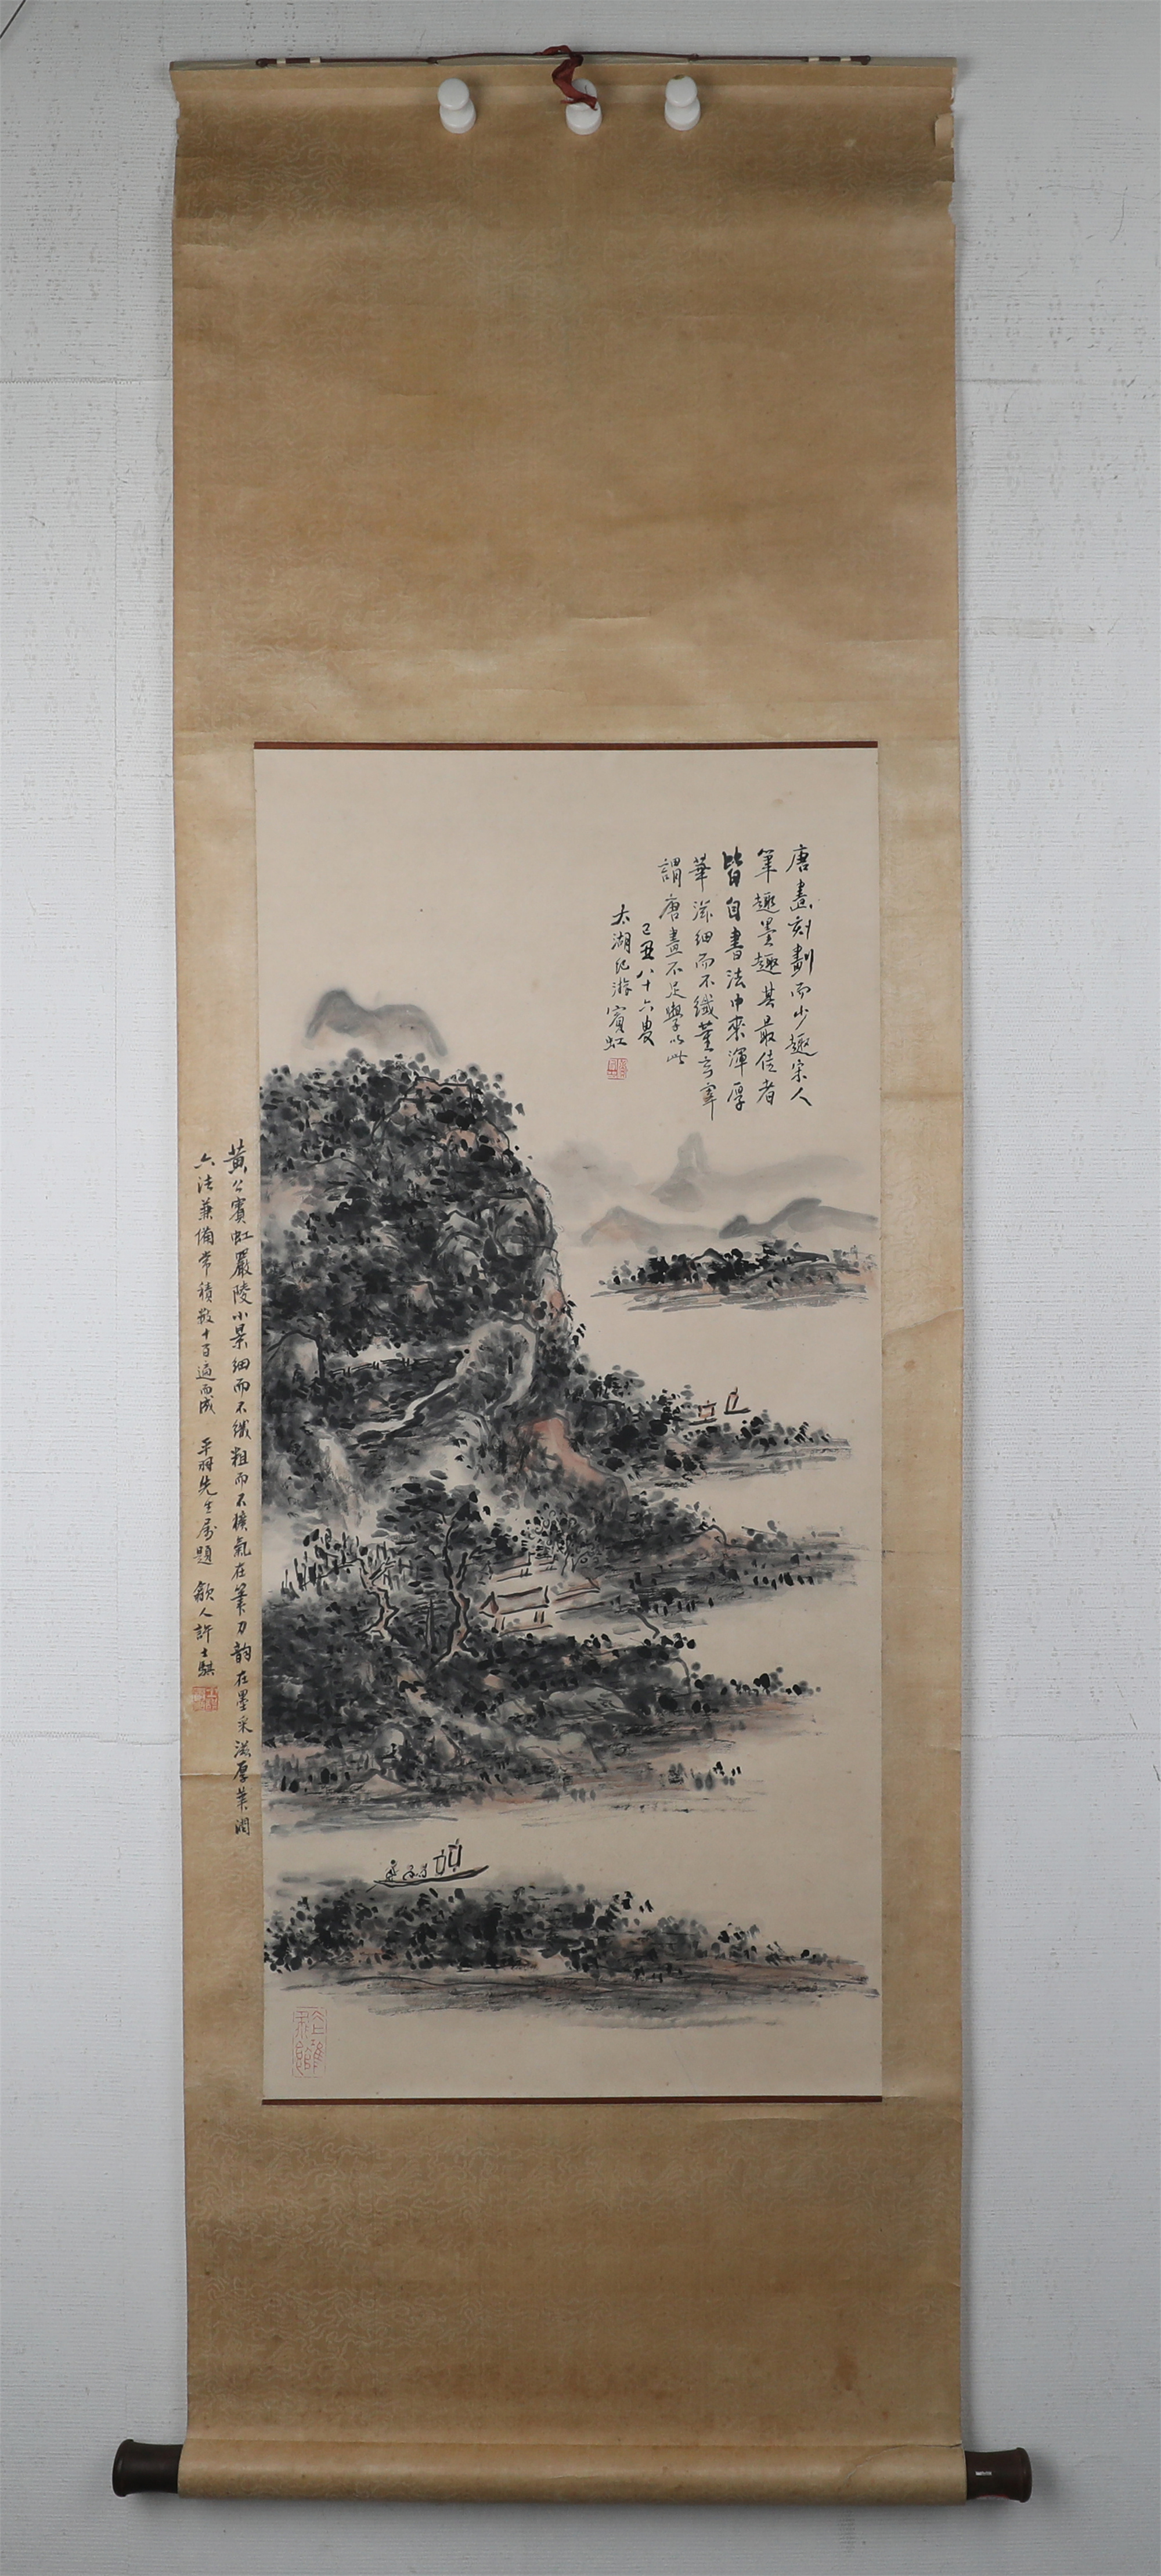 唐畫刻劃而少趣宋人
筆趣墨趣其最佳者
皆自書法中來渾厚
華滋細而不纖董玄宰
謂唐畫不足學以此
己丑八十六叟
太湖紀游 賓虹
黃公賓虹嚴陵小景細而不纖粗而不獷氣在筆力韵在墨采滋厚華潤
六法兼備常積數十百遍而成 平羽先生屬題 歙人許士騏